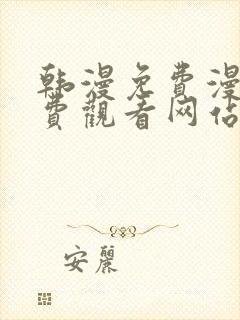 韩漫免费漫
費觀看网佔
安麗